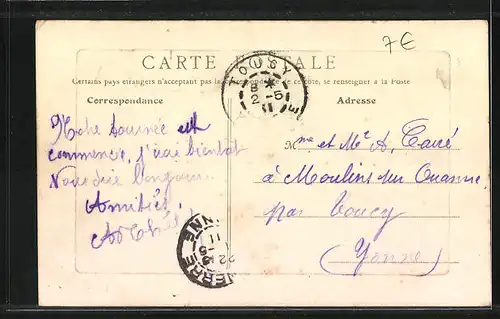 7€
CARTE POSTALE
Certains pays étrangers n'acceptant pas la correspondance de ce côté, se renseigner à la Poste
Correspondance
Adresse
TOUCY
Notre tournée est
commencée, j'irai bientôt
Vous dire bonjour.
Amitiés,
Mme et Mr A,
à Moulins sur Ouanne
par Toucy
(Yonne)